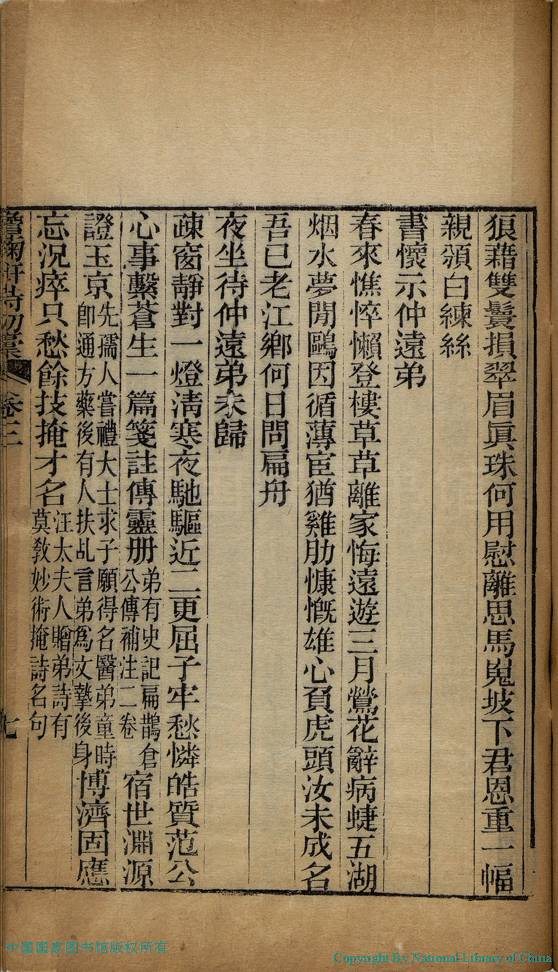 狼藉雙鬟損翠眉眞珠何用慰離思馬嵬坡下君恩重一幅
親頒白練絲
書懷示仲遠弟
春來憔悴懶登樓草草離家悔遠遊三月鶯花辭病蜨五湖
烟水夢閒鷗因循薄宦猶雞肋慷慨雄心負虎頭汝未成名
吾已老江鄉何日問扁舟
夜坐待仲遠弟未歸
疎窗靜對一燈淸寒夜馳驅近二更屈子牢愁憐皓質范公
心事繫蒼生一篇箋註傳靈册弟有史記扁鵲倉公傳補注二卷宿世淵源
證玉京先孺人嘗禮大士求子願得名醫弟童時卽通方藥後有人扶乩言弟爲文摯後身博濟固應
忘況瘁只愁餘技掩才名汪太夫人贈弟詩有莫敎妙術掩詩名句
鞠軒詩初稾 卷三 七
中国国家图书馆版权所有
Copyright By National Library of China